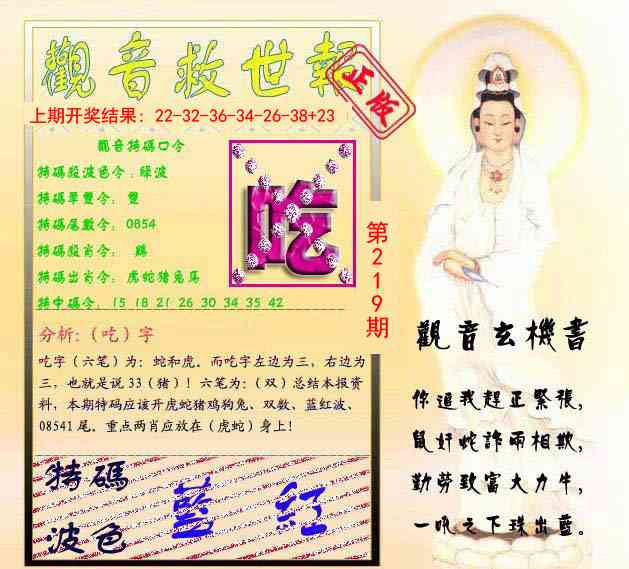 觀音救世報
正版
上期开奖结果：22-32-36-34-26-38+23
觀音特碼口令
特碼殺波色令：綠波
特碼單雙令：雙
特碼尾數令：0854
特碼殺肖令：鷄
特碼出肖令：虎蛇猪兔馬
特中碼令：15 18 21 26 30 34 35 42
吃
第219期
分析:（吃）字
吃字（六笔）为：蛇和虎。而吃字左边为三，右边为
三，也就是说 33（猪）！六笔为：（双）总结本报资
料，本期特码应该开虎蛇猪鸡狗兔、双数、蓝红波、
08541 尾。重点两肖应放在（虎蛇）身上！
特碼
波色
藍 紅
觀音玄機書
你追我趕正緊張，
鼠奸蛇詐兩相欺，
勤勞致富大力牛，
一吼之下珠出藍。